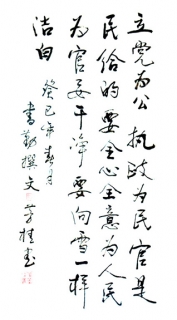 立党为公执政为民官是
民给的要全心全意为人民
为官要干净要向雪一样
洁白
癸巳年春月
书勤撰文芳桂书